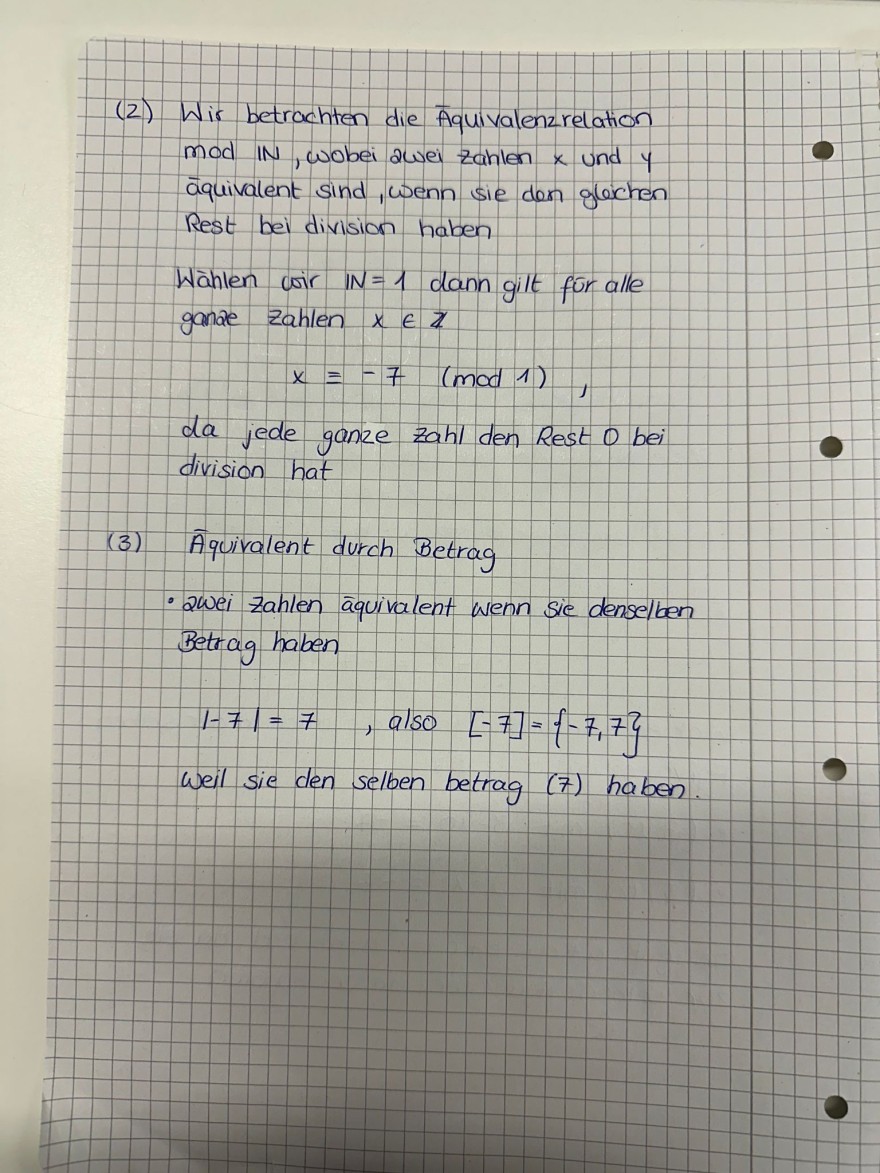 (2) Wir betrachten die Äquivalenzrelation
mod ℕ, wobei zwei Zahlen x und y
äquivalent sind, wenn sie den gleichen
Rest bei division haben
Wählen wir ℕ = 1 dann gilt für alle
ganze Zahlen x ∈ ℤ
x ≡ -7 (mod 1) ,
da jede ganze Zahl den Rest 0 bei
division hat
(3) Äquivalent durch Betrag
• zwei Zahlen äquivalent wenn sie denselben
Betrag haben
|-7| = 7 , also [-7] = {-7,7}
weil sie den selben betrag (7) haben.